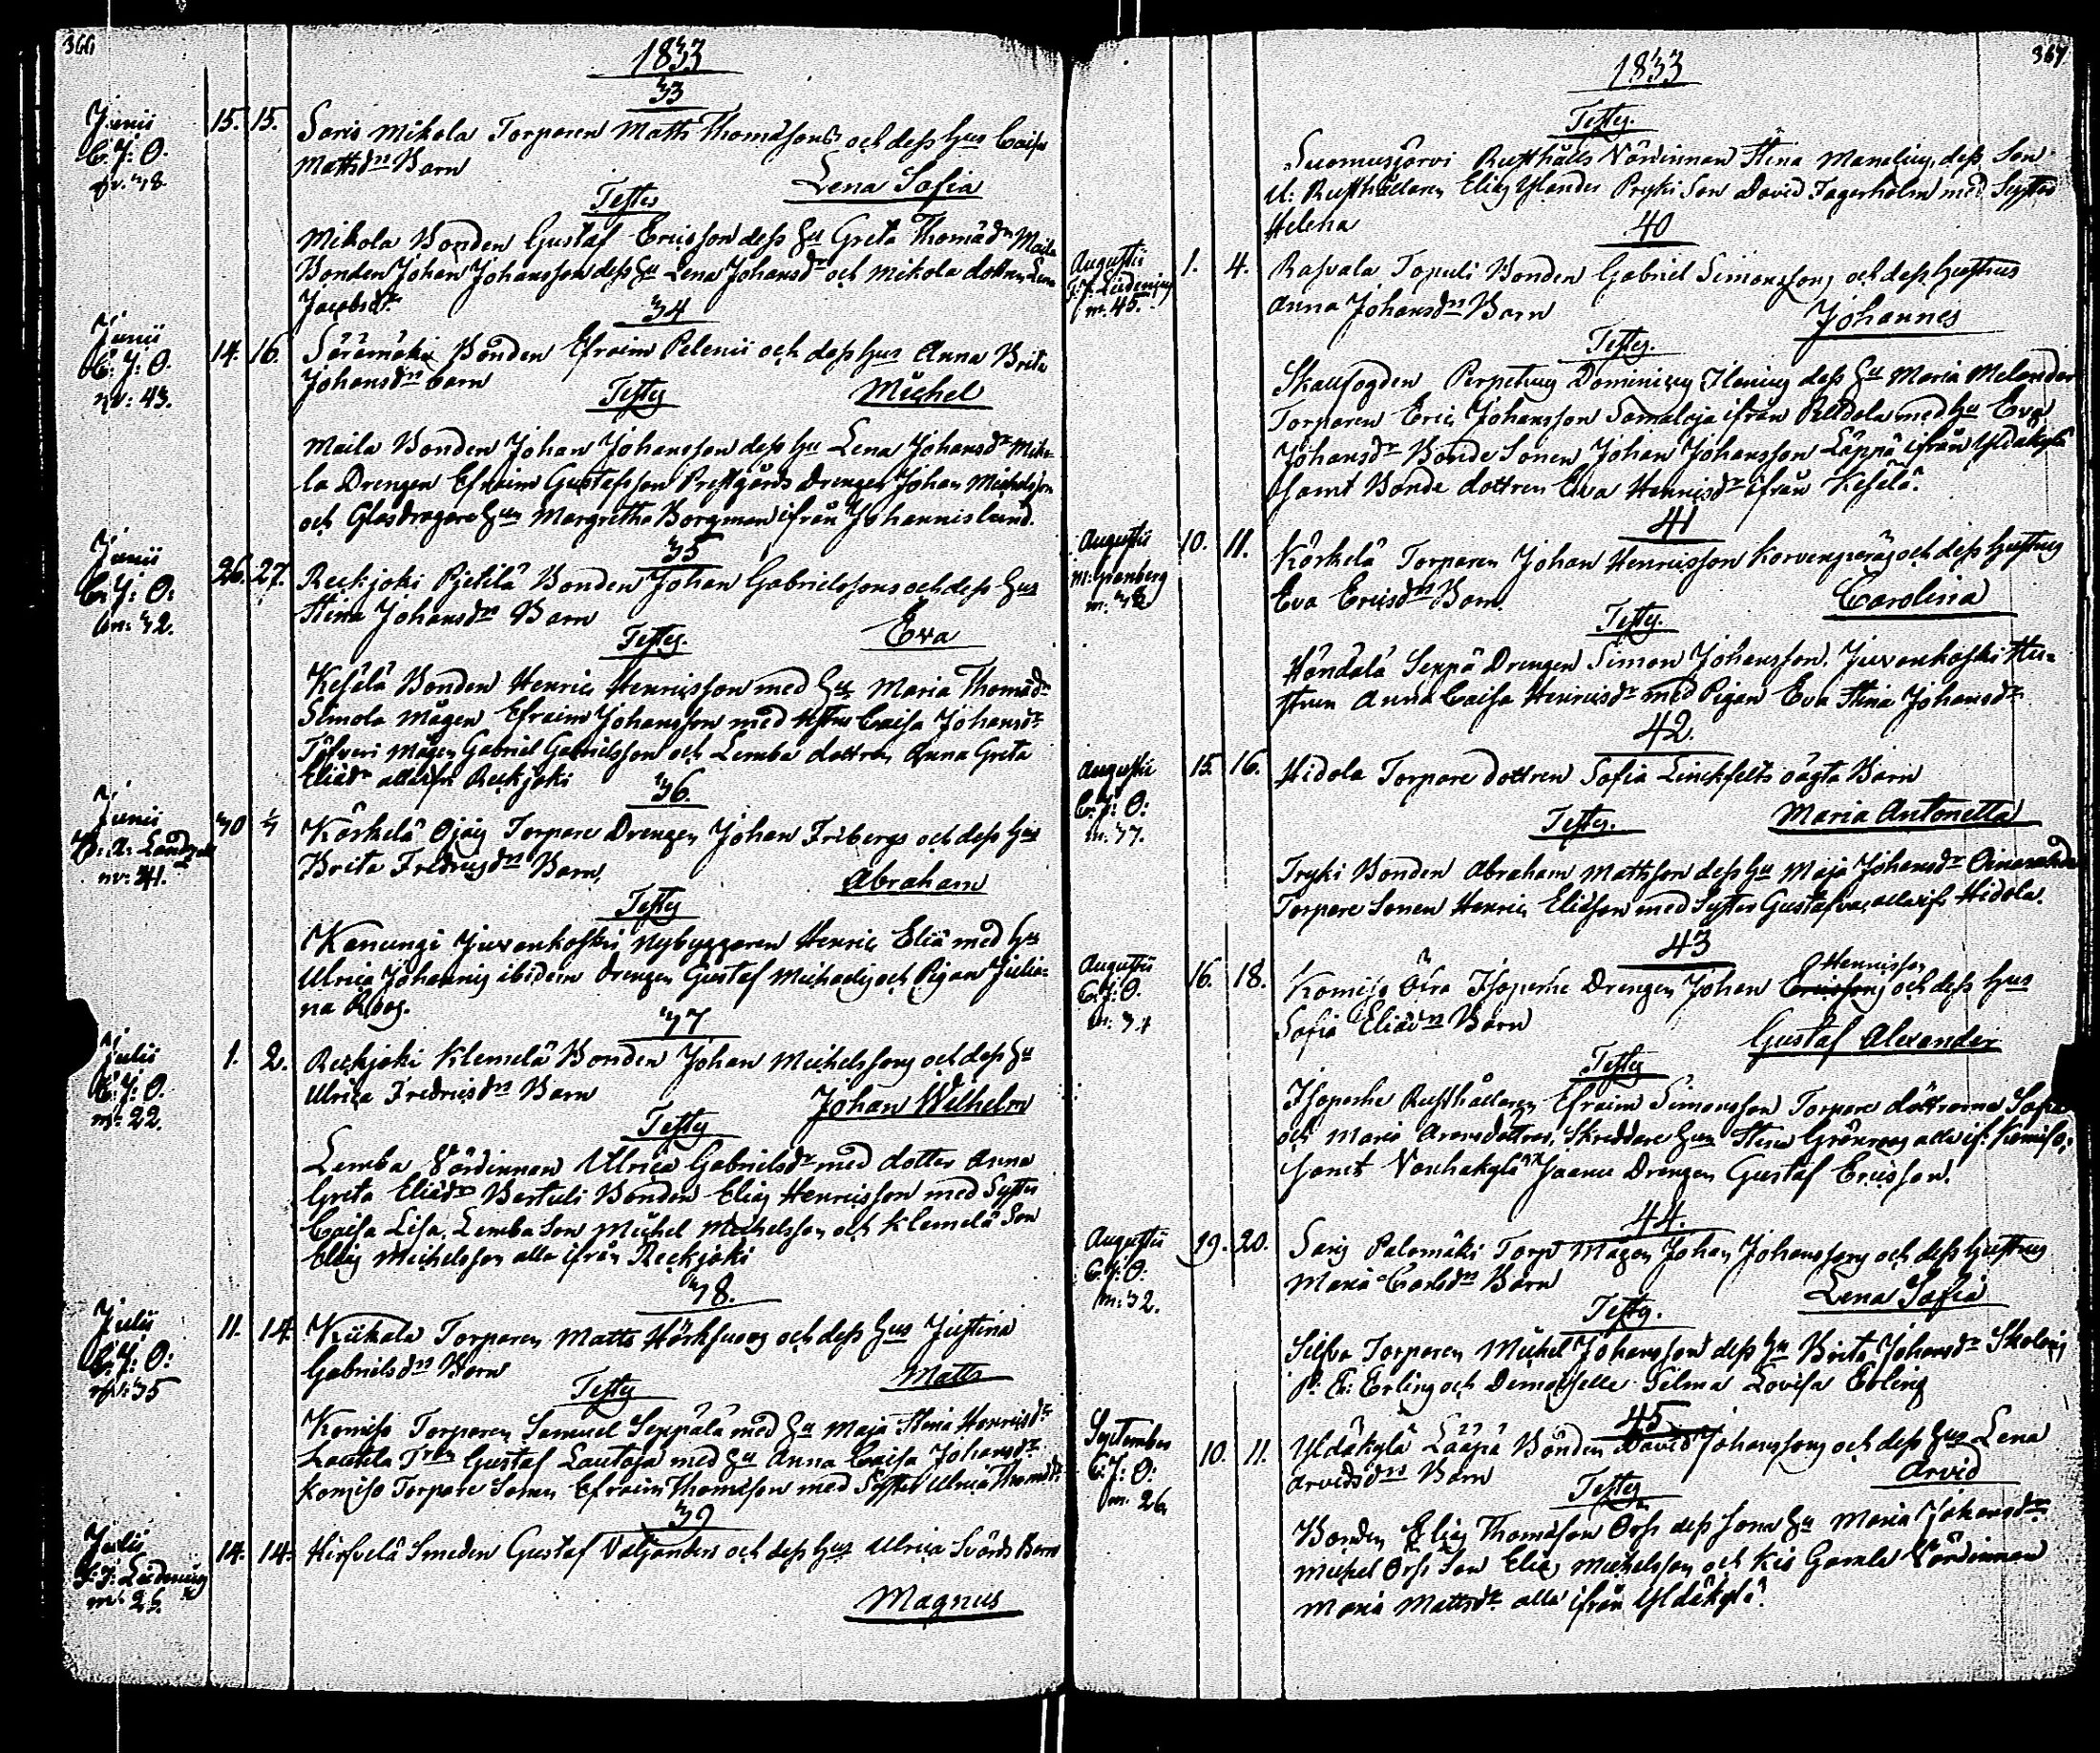 366
1833
33
Junii
C. J: O.
15. 15.
Saris Mikola Torparen Matts Thomassons och dess Hus Caisa
Mattsdrs Barn
Lena Sofia
Testes
Mikola Bonden Gustaf Ericsson dess Hu Greta Thomædr Maila
Bonden Johan Johansson dess Hu Lena Johansdr och Mikola dottren Lena
Jacobsdr
34
Junii
C: J: O.
m: 43.
14. 16.
Säämäki Bonden Efraim Pelenii och dess Hus Anna Brita
Johansdrs barn
Michel
Testes
Maila Bonden Johan Johansson dess Hu Lena Johansdr Miko-
la Drengen Efraim Gustafsson Prestgårds Drengen Johan Michelsson
och Glasdragare Hun Margretha Borgman ifrån Johannislund.
35
Junii
C: J: O:
m: 32.
26. 27.
Reckjoki Pjetilä Bonden Johan Gabrielssons och dess Hus
Stina Johansdrs Barn
Eva
Testes.
Kesälä Bonden Henric Henricsson med Hu Maria Thomædr
Simola Mågen Efraim Johansson med Hustru Caisa Johansdr
Mågen Gabriel Gabrielsson och Lemba dottren Anna Greta
Eliædr alla ifr Reckjoki
36.
Junii
m: 41.
30
Körkelä Ojais Torpare Drengen Johan Fribergs och dess Hus
Brita Fredricsdrs Barn
Abraham
Testes
Kanungi Juvankoski Nybyggaren Henric Eliæ med Hu
Ulrica Johannis ibidem Drengen Gustaf Michaelis och Pigan Julia-
na Roos.
37
Julii
C: J: O.
m: 22.
1. 2.
Reckjoki Klemelä Bonden Johan Michelssons och dess Hu
Ulrica Fredricsdrs Barn
Johan Wilhelm
Testes
Lemba Värdinnan Ulrica Gabrielsdr med dotter Anna
Greta Eliædr Bertuli Bonden Elias Henricsson med Syster
Caisa Lisa, Lemba Son Michel Michelsson och Klemelä Son
Elias Michelsson alla ifrån Reckjoki
38.
Julii
C: J: O:
m: 35
11. 14.
Kiikala Torparen Matts och dess Hus Justina
Gabrielsdrs Barn
Matts
Testes
Komiso Torparen Samuel Seppälä med Hu Maja Stina Henricsdr
Gustaf Lautoja med Hu Anna Caisa Johansdr
Komiso Torpare Sonen Efraim Thomasson med Syster Ulrica Thomædr
39
Julii
14. 14.
Hirsvelä Smeden Gustaf Valjanders och dess Hus Ulrica Svärds Barn
Magnus
367
1833
Testes.
Suomusjärvi Rusthålls Värdinnan Stina Manelius, dess Son
Rusthållaren Elias Ylander Pryki Son David Fagerholm med Syster
Helena
40
Augustii
m. 45.
1. 4.
Rasvala Topuli Bonden Gabriel Simonssons och dess Hustrus
Anna Johansdrs Barn
Johannes
Testes.
Skallfogden Perpetuus Dominicus Ilenius dess Hu Maria Melander
Torparen Eric Johansson Samaloja ifrån med Hu Eva
Johansdr Bonde Sonen Johan Johansson Läppä ifrån Yldäkylä
samt Bonde dottren Eva Henricsdr ifrån Kesälä.
41
Augustii
M: Granberg
10. 11.
Körkelä Torparen Johan Henricsson och dess Hustrus
Eva Ericsdrs Barn.
Carolina
Testes.
Händälä Seppä Drengen Simon Johansson, Juvankoski Hu-
strun Anna Caisa Henricsdr med Pigan Eva Stina Johansdr
42.
Augustii
C: J: O:
m. 37.
15. 16.
Hidola Torpare dottren Sofia Linckfelts oägta Barn
Maria Antonetta
Testes.
Tryki Bonden Abraham Mattsson dess Hu Maja Johansdr
Torpare Sonen Henric Eliæson med Syster Gustafva, alla ifr Hidola.
43
Augustii
C: J: O.
16. 18.
Henricsson
Komiso Öfra Isoperhe Drengen Johan Ericssons och dess Hus
Sofia Eliædrs Barn
Gustaf Alexander
Testes
Isoperhe Rusthållaren Efraim Simonsson Torpare döttrarna Sofia
och Maria Aronsdöttrar, Skreddare Hun Stina Grönroos alla if: Komiso,
samt Vanhakylä Jaanu Drengen Gustaf Ericsson.
44.
Augustii
C: J: O:
m: 32.
19. 20.
Saris Palomäki Torp Mågen Johan Johanssons och dess Hustrus
Maria Carlsdrs Barn
Lena Sofia
Testes.
Torparen Michel Johansson dess Hu Brita Johansdr
Erling och Demoiselle Lovisa Erling
45
September
C: J: O:
m. 26
10. 11.
Yldäkylä Lääpä Bonden David Johanssons och dess Hus Lena
Arvidsdrs Barn
Arvid
Testes
Bonden Elias Thomasson Orh dess sona Hu Maria Johansdr
Michel Orh Son Elias Michelsson och Kis Gamla Värdinnan
Maria Mattsdr alla ifrån Yldäkylä.